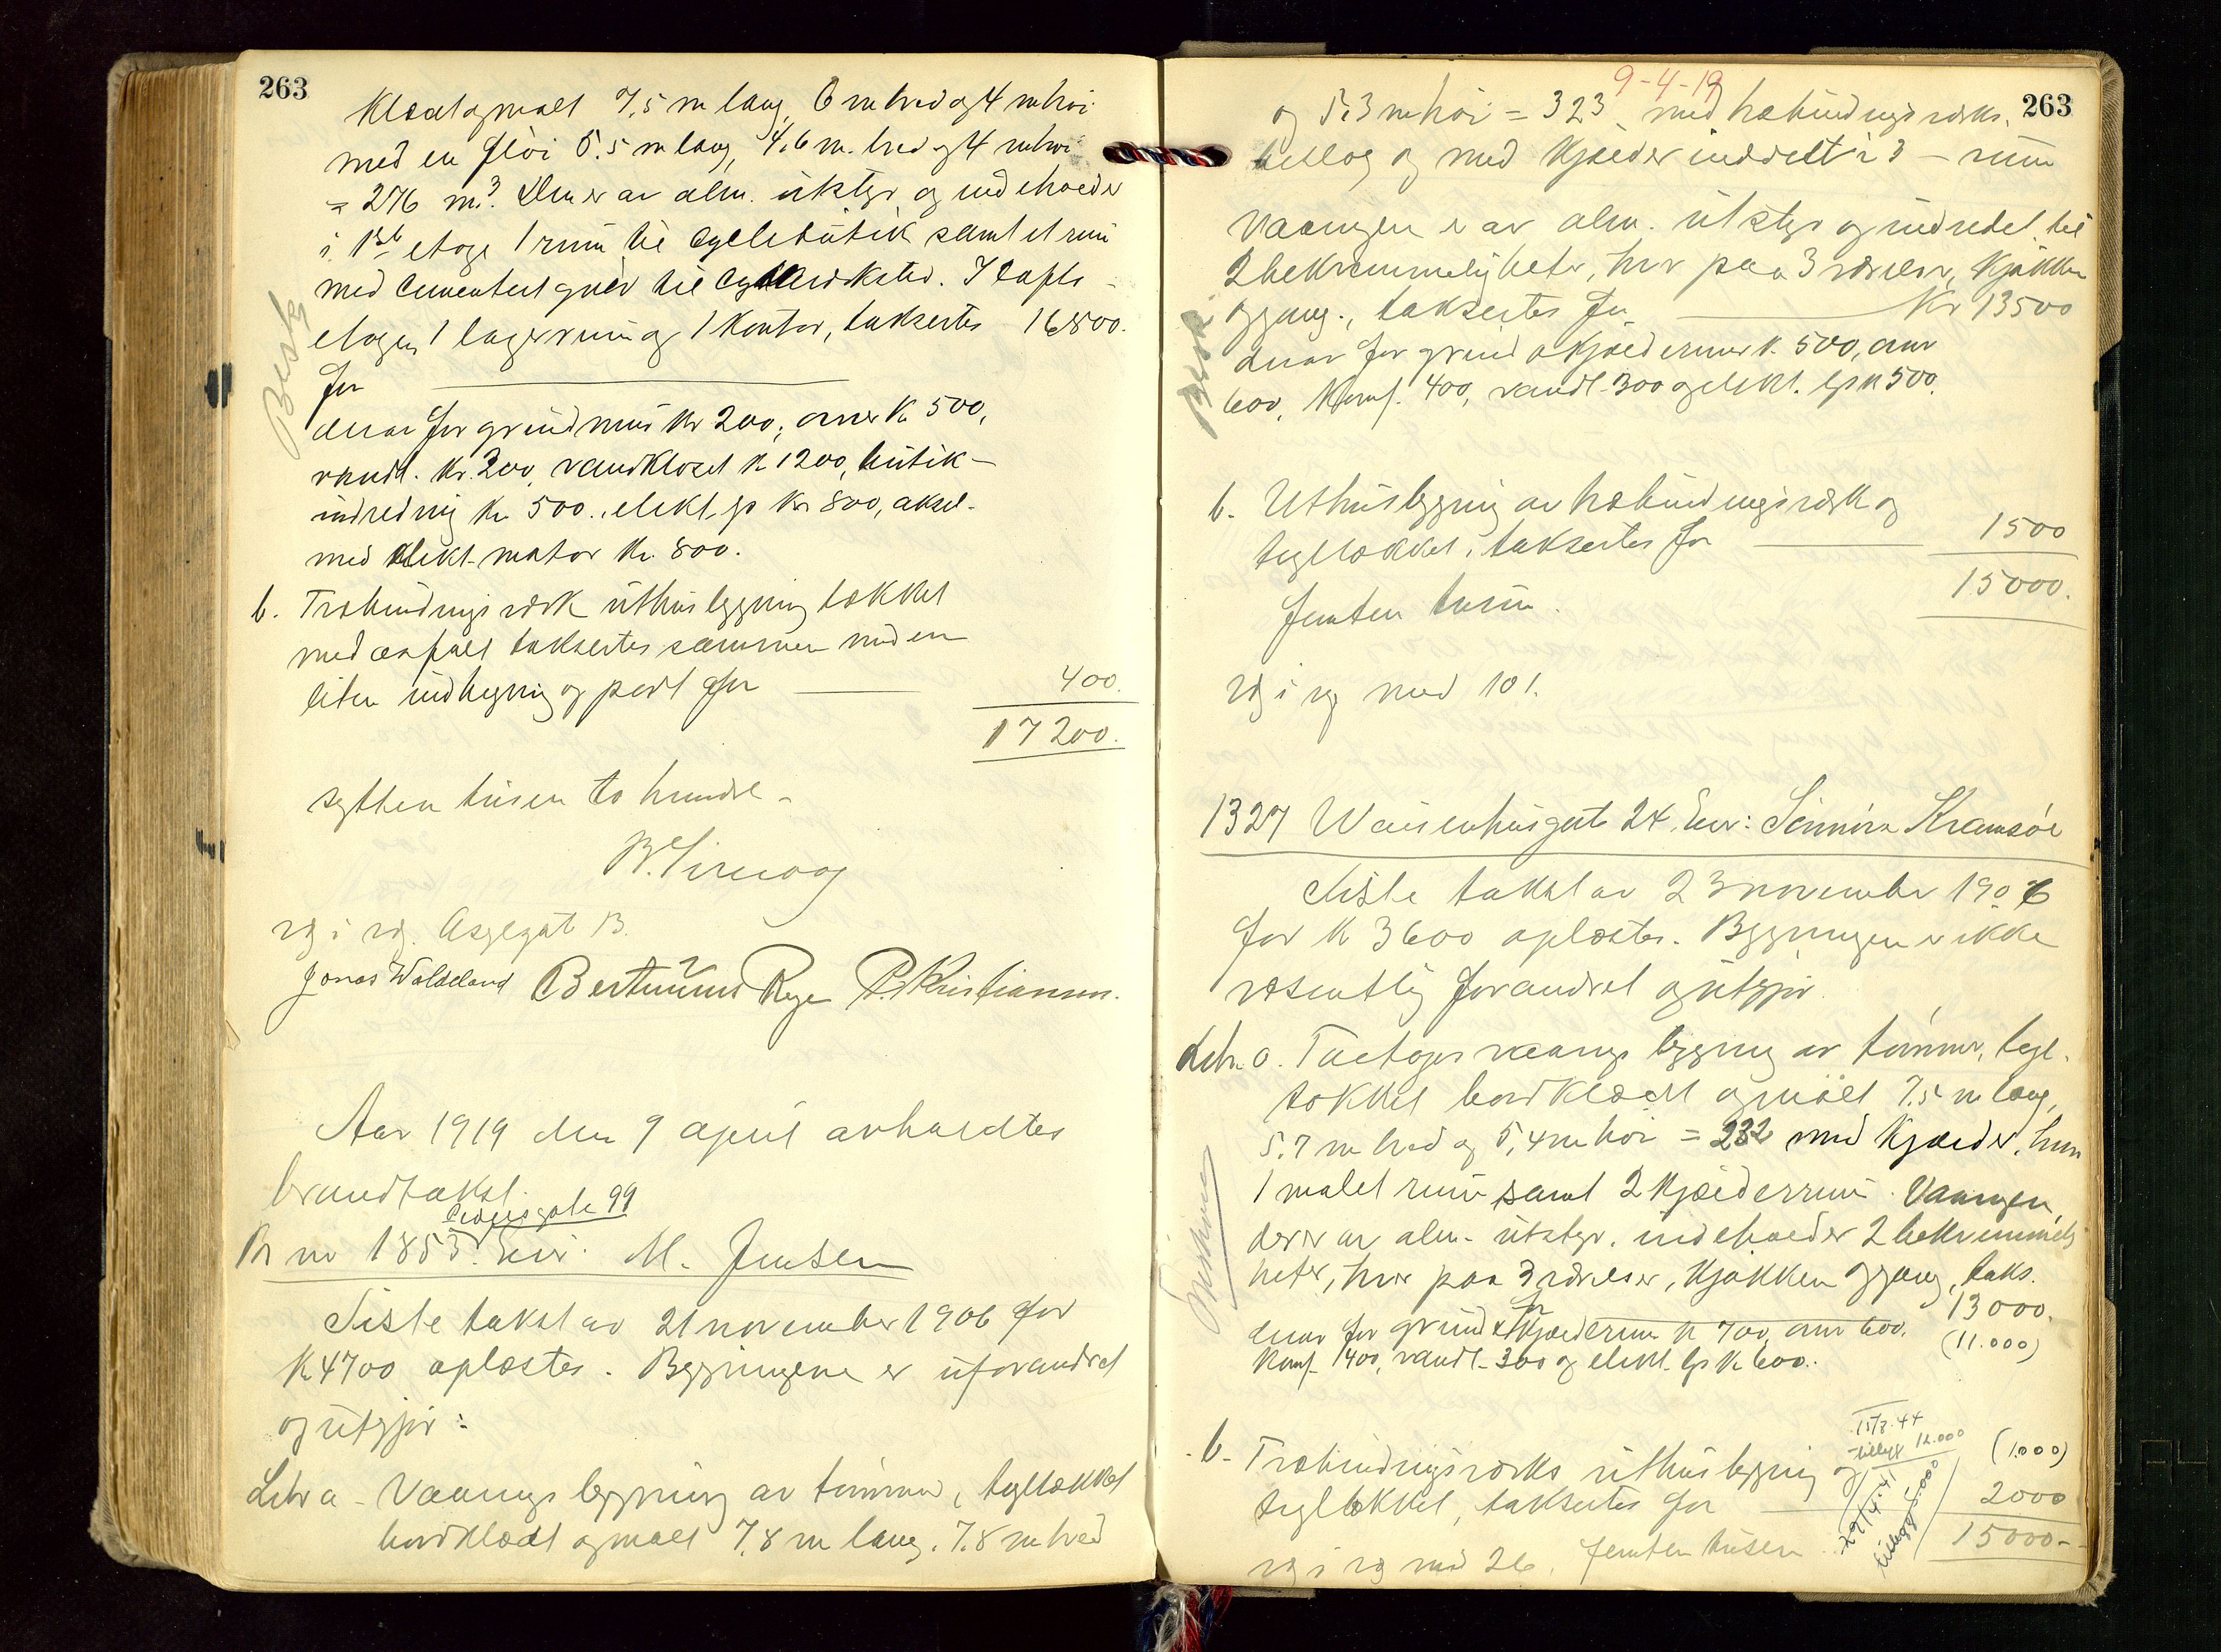 263
Klædt og malt 7,5 m lang, 6 m bred og 4 m høi
med en fløi 5.5 m lang, 4,6 m. bred og 4 m høi
= 276 m³. Den er av alm. utstyr og indeholder
i 1ste etage 1 rum til cyclebutik samt et rum
med cementert gulv til cycleverksted. I lofts-
etagen 1 lagerrum og 1 kontor, takseres 16800.
for
derav for grundmur kr 200, ovner k 500,
vandl. kr. 200, vandkloset k 1200, butik-
indredning kr 500., elekt. lys kr 800, aksel-
med elekt. motor kr. 800.
Besk
b. Træbindingsverk uthusbygning tækket
med asfalt takseres sammen med en
liten indhegning og port for 400.
17200.
sytten tusen to hundre -
vg i vg. Asylgat 13.
Jonas Waldeland Bertinius Rege P. Kristiansen.
Aar 1919 den 9 april avholdtes
brandtakst.
Pedersgate 99
Br nr 1853. Eier: M. Jensen
Siste takst av 21 november 1906 for
K 4700 oplæstes. Bygningene er uforandret
og utgjør:
Litr a - Vaaningsbygning av tømmer, tegltækket
bordklædt og malt 7,8 m lang, 7.8 m bred
9-4-19
263
og 5.3 m høi = 323 med halvbindingsverks
tillæg og med kjelder inddelt i 3 - rum
Vaaningen er av alm. utstyr og indredet til
2 bekvemmeligheter, hver paa 3 værelser, kjøkken
og gang., takseres for Kr 13500
derav for grund & kjeldermur k. 500, ovner
600, Komf. 400, vandl. 300 og elekt. lys k 500.
Besk
b. Uthusbygning av halvbindingsverk og
tegltækket, takseres for 1500
15000.
femten tusen.
vg i vg med 101.
1327 Waisenhusgate 24. Eier: Kramsöe
Siste takst av 23 november 1906
for k 3600 oplæstes. Bygningen er ikke
væsentlig forandret og utgjør
Litr. a. Toetages vaaningsbygning av tømmer, tegl-
tækket bordklædt og malt 7.5 m lang,
5.7 m bred og 5,4 m høi = 232 med kjælder, hvori
1 malet rum samt 2 kjelderrum. Vaaningen,
der er av alm. utstyr. indeholder 2 bekvemmelig
heter, hver paa 3 værelser, kjøkken og gang, taks.
for 13000.
derav for grund & kjeldermur k 700, ovner 600.
(11.000)
Komf. 400, vandl. 300 og elekt. lys k 600.
15/3.44
tillegg 12.000
b. Træbindingsverks uthusbygning og (1.000)
tegltækket, takseres for 2000
29/4.41
tillegg 5.000
15000.-
vg i vg med 26. femten tusen